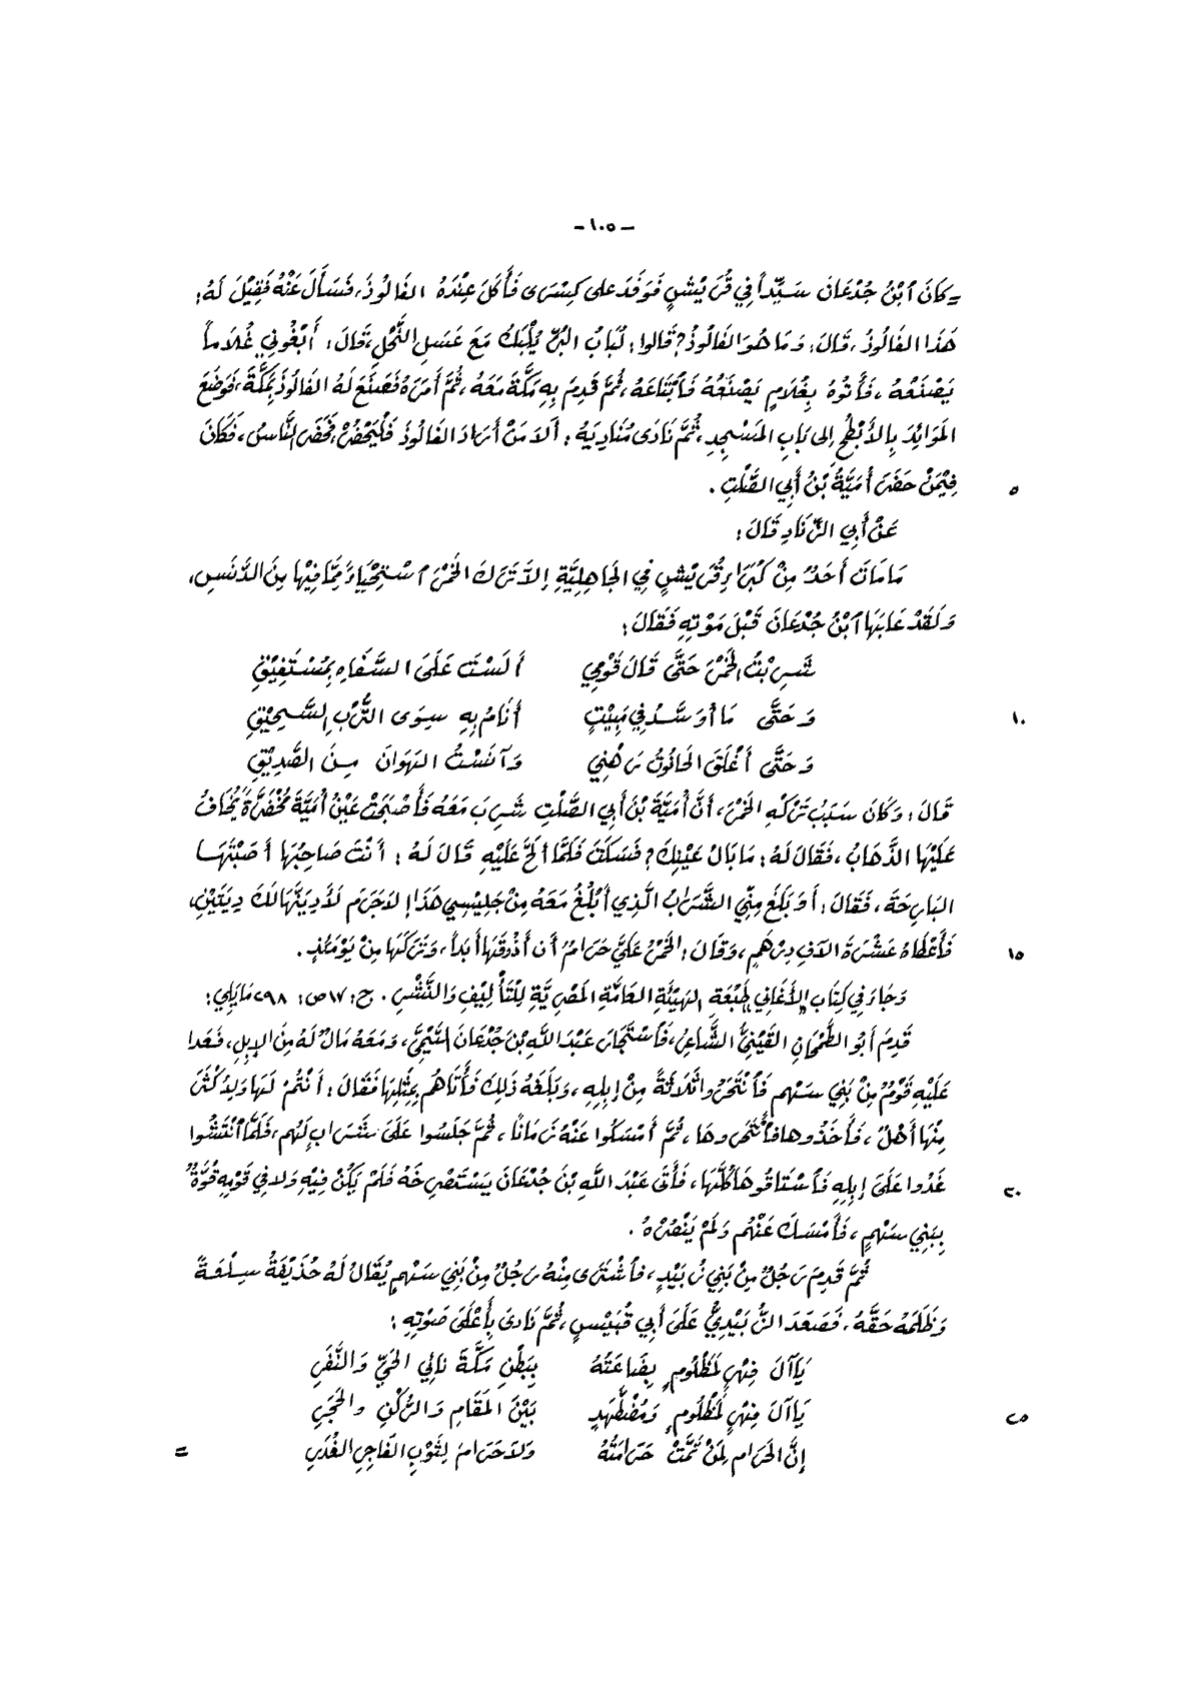 ـ ١٠٥ ـ
= كَانَ ٱبْنُ جُدْعَانَ سَيِّداً فِي قُرَيْشٍ فَوَفَدَ على كِسْرَى فَأَكَلَ عِنْدَهُ الفَالُوذَ، فَسَأَلَ عَنْهُ فَقِيْلَ لَهُ:
هَذَا الفَالُوذُ، قَالَ: وَمَا هُوَ الفَالُوذُ؟ قَالوا: لُبَابُ البُرِّ يُلْبَكُ مَعَ عَسَلِ النَّحْلِ، قَالَ: أَبْغُونِي غُلَاماً
يَصْنَعُهُ، فَأَتُوهُ بِغُلَامٍ يَصْنَعُهُ فَٱبْتَاعَهُ، ثُمَّ قَدِمَ بِهِ مَكَّةَ مَعَهُ، ثُمَّ أَمَرَهُ فَصَنَعَ لَهُ الفَالُوذَ بِمَكَّةَ، فَوَضَعَ
المَوَائِدَ بِالأَبْطُحِ إلى بَابِ المَسْجِدِ، ثُمَّ نَادَى مُنَادِيَهُ: أَلَا مَنْ أَرَادَ الفَالُوذَ فَلْيَحْضُرْ، فَحَضَرَ النَّاسُ، فَكَانَ
٥ فِيْمَنْ حَضَرَ أُمَيَّةُ بْنُ أَبِي الصَّلْتِ.
عَنْ أَبِي الزِّنَادِ قَالَ:
مَا مَاتَ أَحَدٌ مِنْ كُبَرَاءِ قُرَيْشٍ فِي الجَاهِلِيَّةِ إلاَّ تَرَكَ الخَمْرَ ٱسْتِحْيَاءً مِمَّا فِيْهَا مِنَ الدَّنَسِ،
وَلَقَدْ عَابَهَا ٱبْنُ جُدْعَانَ قَبْلَ مَوْتِهِ فَقَالَ:
شَرِبْتُ الخَمْرَ حَتَّى قَالَ قَوْمِي أَلَسْتَ عَلَى السَّفَاهِ بِمُسْتَفِيْقِ
١٠ وَحَتَّى مَا أُوَسَّدُ فِي مَبِيْتٍ أَنَامُ بِهِ سِوَى التُّرْبِ السَّحِيْقِ
وَحَتَّى أَغْلَقَ الحَانُوتُ رَهْنِي وَآنَسْتُ الهَوَانَ مِنَ الصَّدِيْقِ
قَالَ: وَكَانَ سَبَبُ تَرْكِهِ الخَمْرَ، أَنَّ أُمَيَّةَ بْنَ أَبِي الصَّلْتِ شَرِبَ مَعَهُ فَأَصْبَحَتْ عَيْنُ أُمَيَّةَ مُخْضَرَّةً يُخَافُ
عَلَيْهَا الذَّهَابُ، فَقَالَ لَهُ: مَا بَالُ عَيْنِكَ؟ فَسَكَتَ فَلَمَّا أَلَحَّ عَلَيْهِ قَالَ لَهُ: أَنْتَ صَاحِبُهَا أَصَبْتَهَا
البَارِحَةَ، فَقَالَ: أَوَبَلَغَ مِنِّي الشَّرَابُ الَّذِي أَبْلُغُ مَعَهُ مِنْ جَلِيْسِي هَذَا! لَاجَرَمَ لَأَدِيَنَّهَا لَكَ دِيَتَيْنِ،
١٥ فَأَعْطَاهُ عَشْرَةَ آلَافِ دِرْهَمٍ، وَقَالَ: الخَمْرُ عَلَيَّ حَرَامٌ أَن أَذُوْقَهَا أَبَداً، وَتَرَكَهَا مِنْ يَوْمَئِذٍ.
وَجَاءَ فِي كِتَابِ الأَغَانِي طَبْعَةِ الهَيْئَةِ العَامَّةِ المَصْرِيَّةِ لِلتَّأْلِيْفِ وَالنَّشْرِ. ج: ١٧ ص: ٢٩٨ مَايَلِي:
قَدِمَ أَبُو الطَّمَحَانِ القَيْنِيُّ الشَّاعِرُ، فَٱسْتَجَارَ عَبْدَ اللهِ بْنَ جُدْعَانَ التَّيْمِيَّ، وَمَعَهُ مَالٌ لَهُ مِنَ الإبِلِ، فَعَدَا
عَلَيْهِ قَوْمٌ مِنْ بَنِي سَهْمٍ فَٱنْتَحَرُوا ثَلَاثَةً مِنْ إِبِلِهِ، وَبَلَغَهُ ذَلِكَ فَأَتَاهُم بِمِثْلِهَا فَقَالَ: أَنْتُمْ لَهَا وَلِأَكْثَرَ
مِنْهَا أَهْلٌ، فَأَخَذُوهَا فَٱنْتَحَرُوهَا، ثُمَّ أَمْسَكُوا عَنْهُ زَمَاناً، ثُمَّ جَلَسُوا عَلَى شَرَابٍ لَهُم، فَلَمَّا ٱنْتَشُوا
٢٠ غَدُوا عَلَى إِبِلِهِ فَٱسْتَاقُوهَا كُلَّهَا، فَأَتَى عَبْدَ اللهِ بْنَ جُدْعَانَ يَسْتَصْرِخُهُ فَلَمْ يَكُنْ فِيْهِ وَلا فِي قَوْمِهِ قُوَّةٌ
بِبَنِي سَهْمٍ، فَأَمْسَكَ عَنْهُم وَلَمْ يَنْصُرْهُ.
ثُمَّ قَدِمَ رَجُلٌ مِنْ بَنِي زُبَيْدٍ، فَٱشْتَرَى مِنْهُ رَجُلٌ مِنْ بَنِي سَهْمٍ يُقَالُ لَهُ حُذَيْفَةُ سِلْعَةً
وَظَلَمَهُ حَقَّهُ، فَصَعَدَ الزُّبَيْدِيُّ عَلَى أَبِي قُبَيْسٍ، ثُمَّ نَادَى بِأَعْلَى صَوْتِهِ:
يَاآلَ فِهْرٍ لِمَظْلُومٍ بِضَاعَتُهُ بِبَطْنِ مَكَّةَ نَائِي الحَيِّ وَالنَّفَرِ
٢٥ يَاآلَ فِهْرٍ لِمَظْلُومٍ وَمُضْطَهَدٍ بَيْنَ المَقَامِ وَالرُّكْنِ والحَجَرِ
إِنَّ الحَرَامَ لِمَنْ تَمَّتْ حَرَامَتُهُ وَلَا حَرَامَ لِثَوْبِ الفَاجِرِ الغُدَرِ =